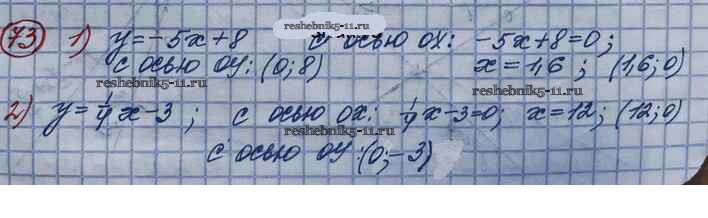 73 1) y=-5x+8 с осью ОХ: -5x+8=0;
с осью ОУ: (0; 8) x=1,6; (1,6; 0)
2) y=1/4 x-3; с осью ОХ: 1/4 x-3=0; x=12; (12; 0)
с осью ОУ: (0; -3)
reshebnik5-11.ru
reshebnik5-11.ru
reshebnik5-11.ru
reshebnik5-11.ru
reshebnik5-11.ru